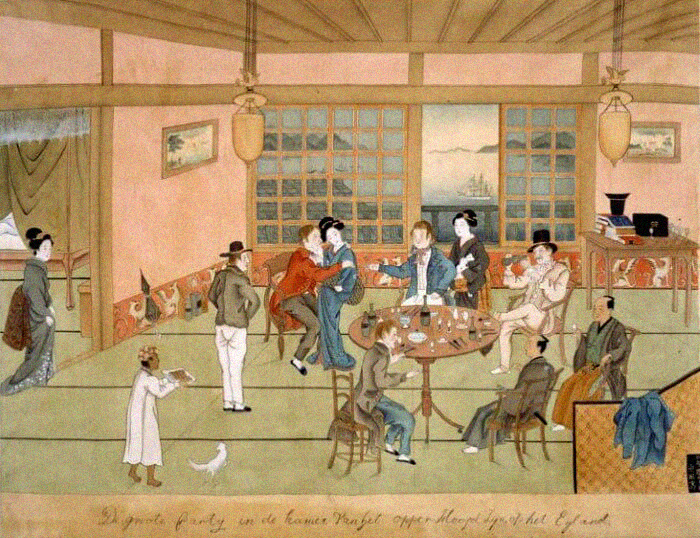 De groote Party in de kamer Van het opper Hoofd het Eyland.